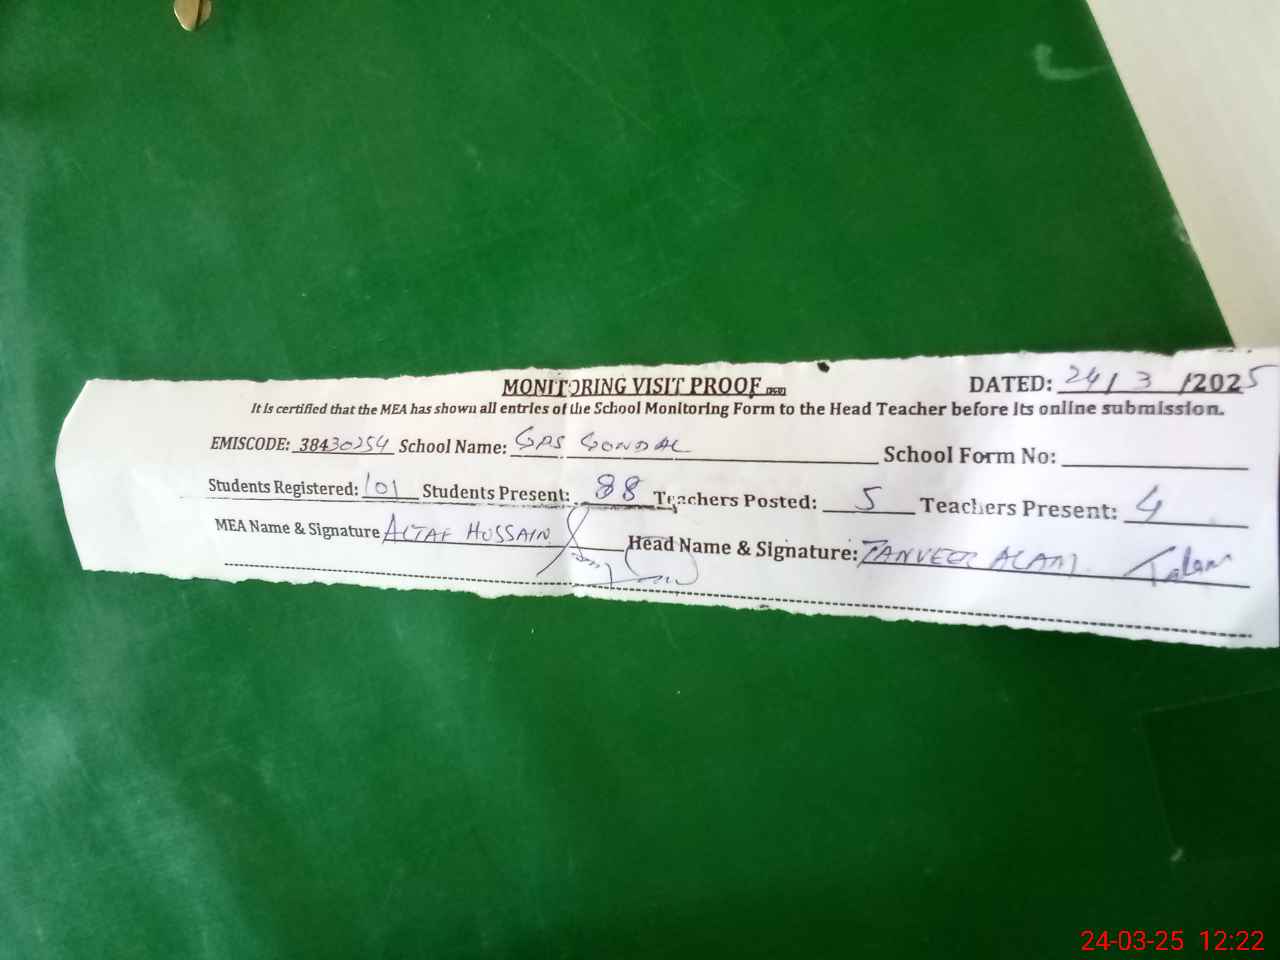 MONITORING VISIT PROOF DATED: 24/3/2025
It is certified that the MEA has shown all entries of the School Monitoring Form to the Head Teacher before its online submission.
EMISCODE: 38430254 School Name: GPS GONDAL School Form No:
Students Registered: 101 Students Present: 88 Teachers Posted: 5 Teachers Present: 4
MEA Name & Signature ALTAF HUSSAIN Head Name & Signature: TANVEER ALAM Talam
24-03-25 12:22